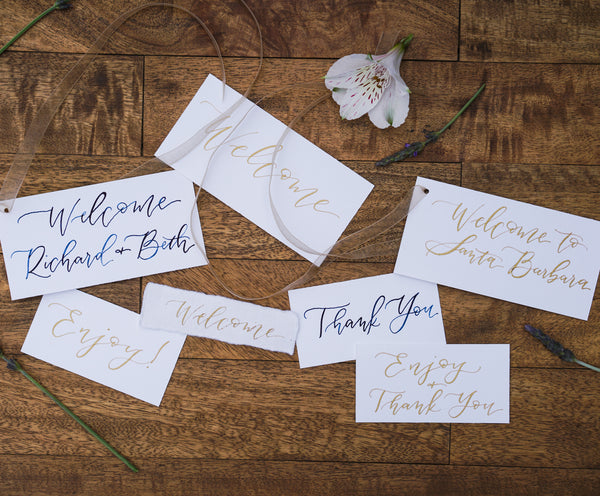 Welcome
Welcome
Richard + Beth
Welcome to
Santa Barbara
Enjoy!
Welcome
Thank You
Enjoy
+
Thank You